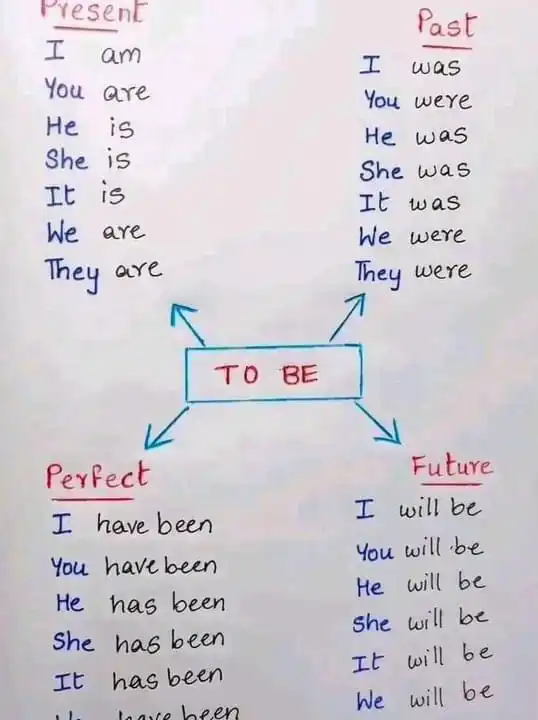 Present
I am
You are
He is
She is
It is
We are
They are
Past
I was
You were
He was
She was
It was
We were
They were
TO BE
Perfect
I have been
You have been
He has been
She has been
It has been
have been
Future
I will be
You will be
He will be
She will be
It will be
We will be